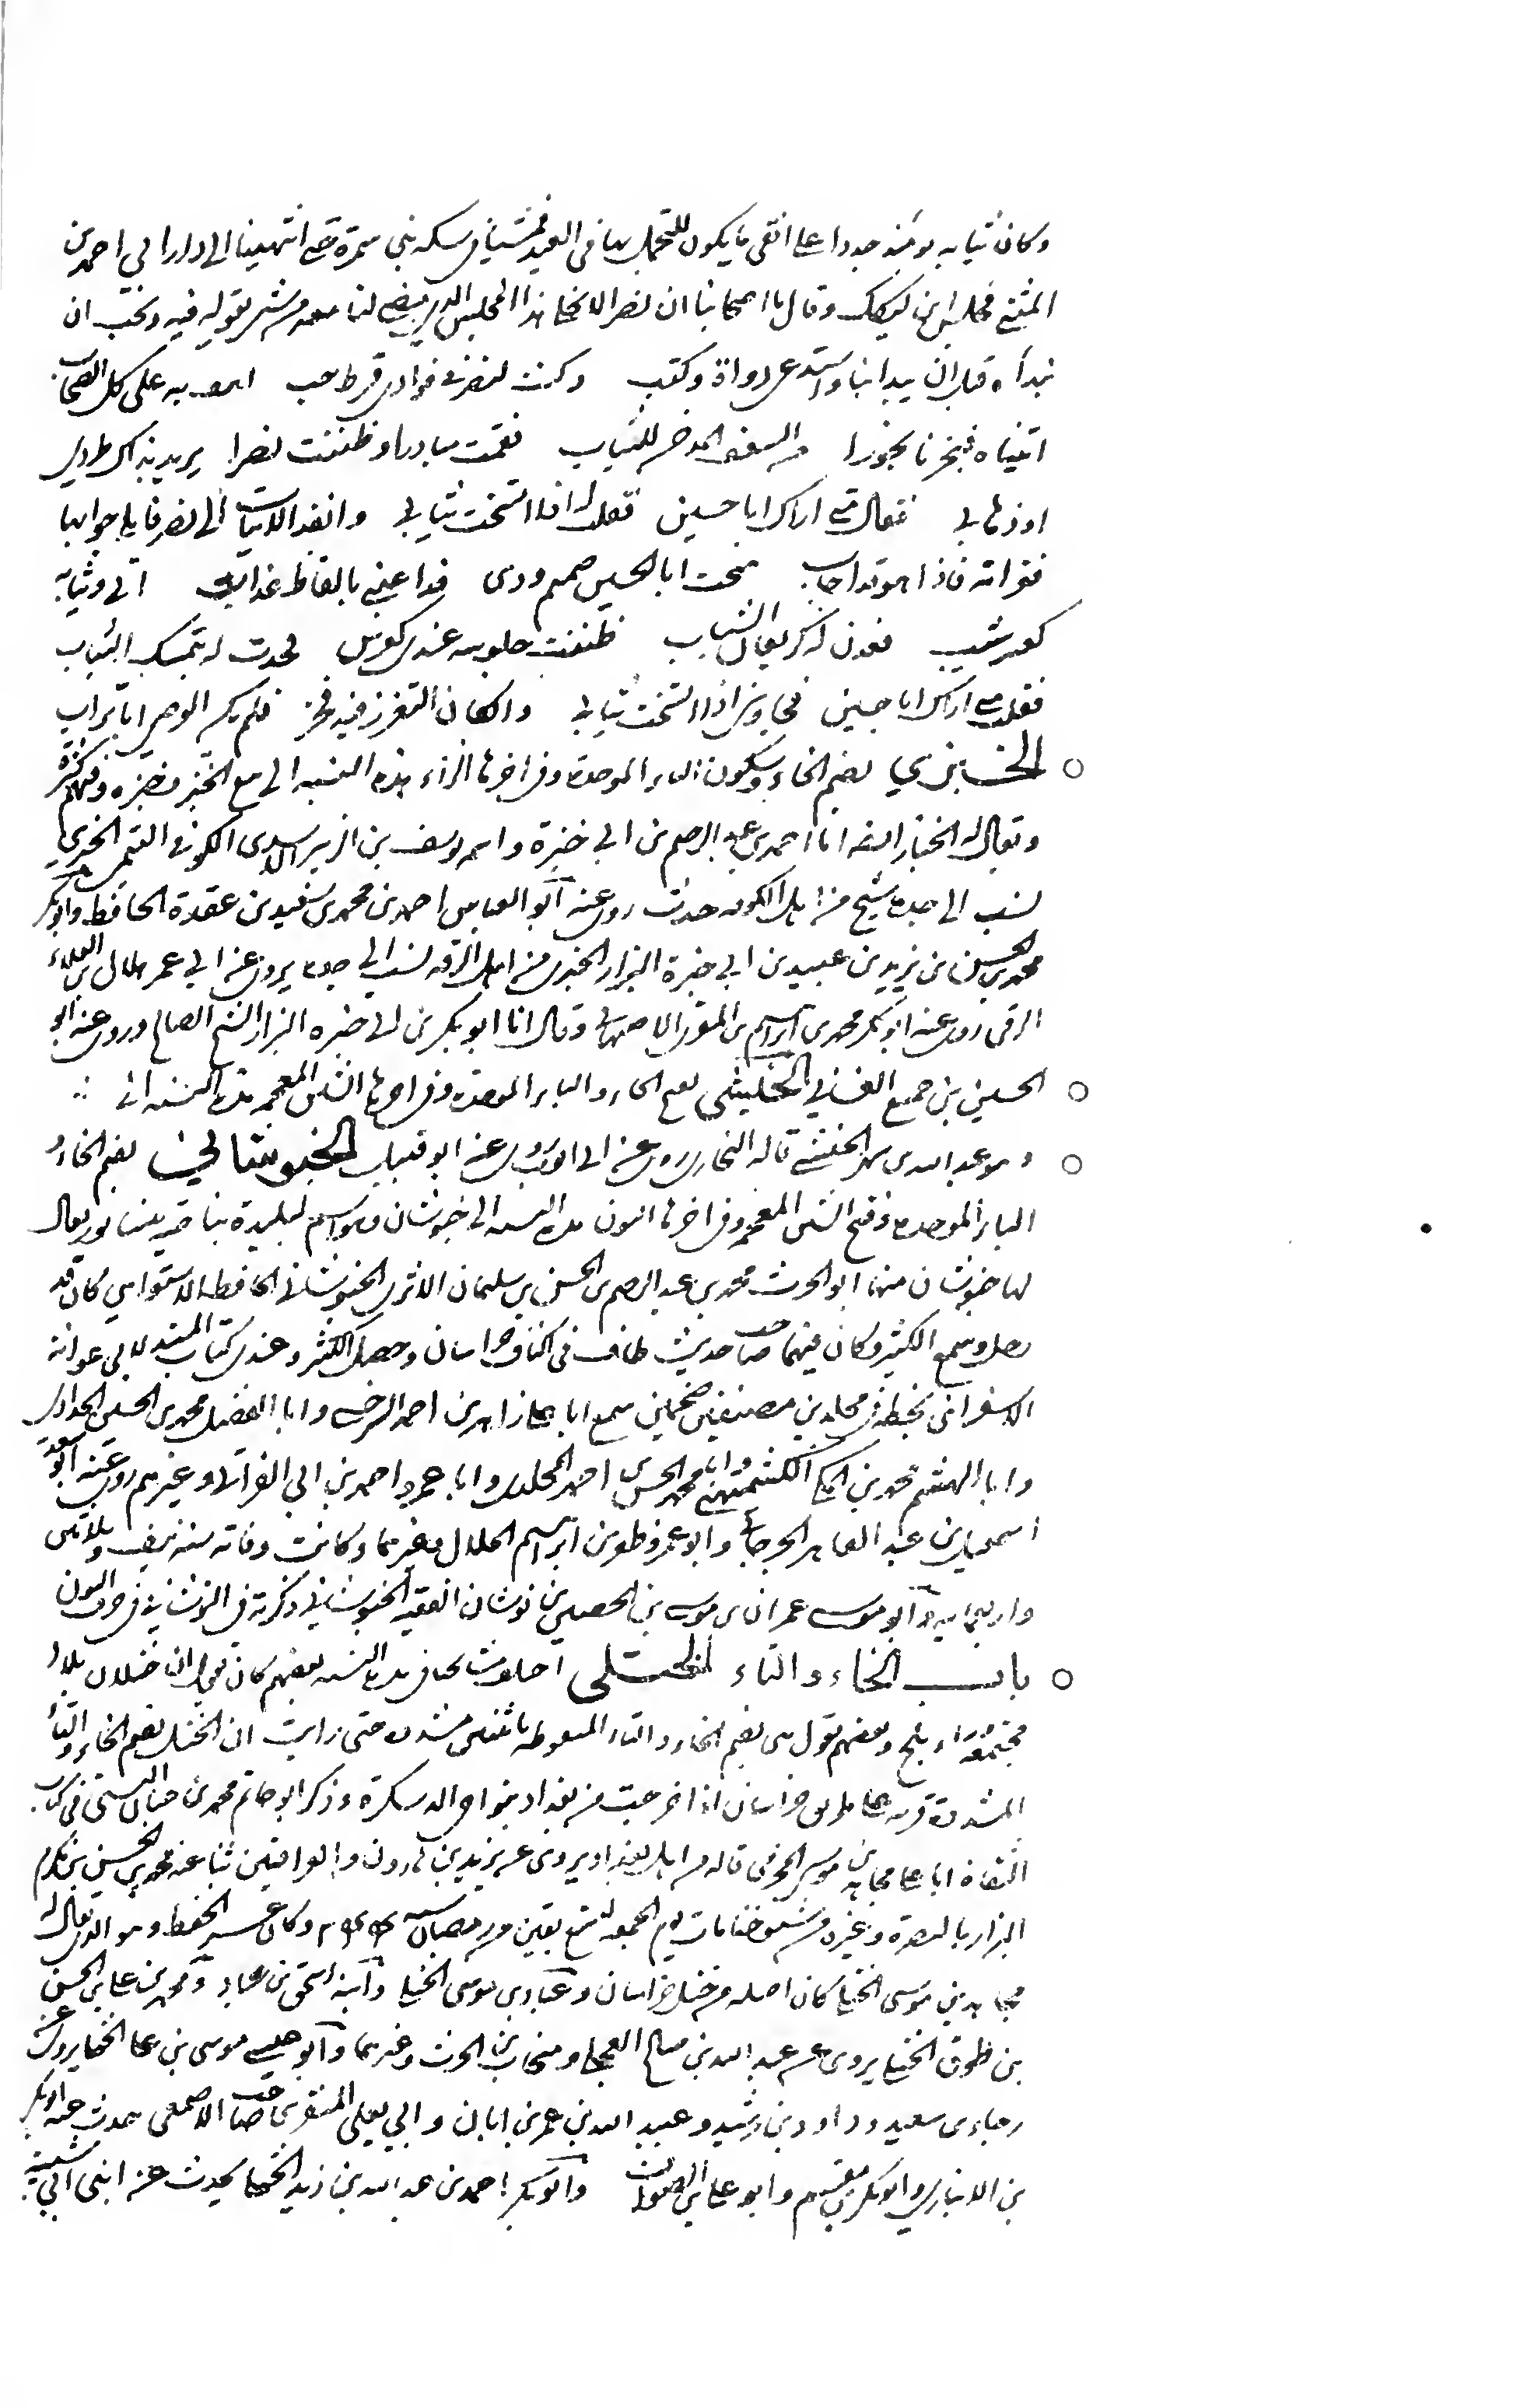 وكان ثيابه يومئذ جددا على انقى ما يكون للتجمل بها فى العيد فمشينا فى سكه بنى سمرة حتى انتهينا الى دار ابي احمد بن
المثنى فجلس ابن لنكك وقال يا اصحابنا ان نصرا لا يخلى هذا المجلس الذي مضى لنا معه من شئ يقوله فيه ونحب ان
نبدأه قبل ان يبدأنا واستدعى دواة وكتب وكنت لنصر فى فؤادى فرط حب به على كل الصحاب
اتيناه فبخرنا بخورا من السعف المدخن للثياب فقمت مبادرا وظننت نصرا يريد بذاك طردى
او ذهابى فقال متى اراك ابا حسين فقلت له اذا اتسخت ثيابى وانفذ الابيات الى نصر فاملى جوابها
فقراته فاذا هو قد اجاب منحت ابا الحسين صميم ودى فداعبنى بالفاظ عذاب اتى وثيابه
كعد شيب فعدن له كريعان الشباب ظننت جلوسه عندى كعرس فجدت له بتمسيك الثياب
فقلت متى اراك ابا حسين فجاوبنى اذا اتسخت ثيابى وان كان التقزز فيه فخر فلم يكن الوصى ابا تراب
الخبزي بضم الخاء وسكون الباء الموحدة وفى اخرها الزاء هذه النسبه الى بيع الخبز وخبزه وفيهم كثرة
ويقال له الخباز ايضا انا احمد بن عبد الرحيم بن ابي خبزة واسمه يوسف بن الزبير الاسدى الكوفى التيمى الخبزي
نسب الى جده شيخ من اهل الكوفه حدث روى عنه ابو العباس احمد بن محمد بن سعيد بن عقدة الحافظ وابو بكر
محمد بن الحسين بن يزيد بن عبيد بن ابي خبزة البزار الخبزى من اهل الرقه نسب الى جده يروى عن ابي عمر هلال بن العلاء
الرقى روى عنه ابو بكر محمد بن ابراهيم بن المقرئ الاصبهانى وقال انا ابو بكر بن ابى خبزه البزار الشيخ الصالح وروى عنه ابو
الحسين بن جميع الغسانى الخبشي بفتح الخاء والباء الموحدة وفى اخرها الشين المعجمه هذه النسبه الى
وهو عبد الله بن شهر الخبشى قاله البخارى روى عن ابى ايوب روى عنه ابو قبيل الخبوشاني بضم الخاء و
الباء الموحدة وفتح الشين المعجمه وفى اخرها النون هذه النسبه الى خبوشان وهو اسم لبليدة بناحيه نيسابور يقال
لها خوشان منها ابو الحرث محمد بن عبد الرحيم بن الحسن بن سليمان الاثرى الخبوشانى الحافظ الاستوائى كان قد
رحل وسمع الكثير وكان فيهما صاحب حديث طاف فى اكناف خراسان وحصل الكثير وعندى كتاب المسند لابى عوانة
الاسفرائنى بخطه فى مجلدين مصنفين ضخمين سمع ابا على زاهر بن احمد السرخسى وابا الفضل محمد بن الحسين الحدادى
وابا الهيثم محمد بن المكى الكشميهنى وابا محمد الحسن بن احمد المخلدى وابا عمرو احمد بن ابي الفراتى وغيرهم روى عنه ابو سعد
اسمعيل بن عبد القاهر الجرجانى وابو عمرو ظفر بن ابراهيم الخلال وغيرهما وكانت وفاته سنة نيف وثلاثين
واربعمايه وابو موسى عمران بن موسى بن الحصين بن نوشان الفقيه الخبوشانى ذكرته فى النوشانى فى حرف النون
باب الخاء والتاء الختلى اختلف مشايخنا فى هذه النسبه بعضهم كان يقول ان ختلان بلاد
مجتمعة وراء بلخ وبعضهم يقول هى بضم الخاء والتاء المنقوطه باثنتين مشدده حتى رايت ان الختل بضم الخاء والتاء
المشددة قرية على طريق خراسان اذا خرجت من بغداد بنواحى الدسكرة وذكر ابو حاتم محمد بن حبان البستى فى كتاب
الثقاة ابا على مجاهد بن موسى المخرمى قاله من اهل بغداد يروى عن يزيد بن هرون والعراقيين ثنا عنه محمد بن الحسين بن مكرم
البزار بالبصرة وغيره من شيوخنا مات يوم الجمعه لتسع بقين من رمضان سنه ٢٤٤ وكان عسر الحفظ وهو الذى يقال له
مجاهد بن موسى الختلى كان اصله من ختل خراسان وعباد بن موسى الختلى وابنه اسحق بن عباد ومحمد بن على بن الحسن
بن طوق الختلى يروى عن عبد الله بن صالح العجلى ومنجاب بن الحرث وغيرهما وابو عيسى موسى بن على الختلى يروى عن
رجاء بن سعيد وداود بن رشيد وعبد الله بن عمر بن ابان وابي يعلى المنقرى صاحب الاصمعى حدث عنه ابو بكر
بن الانبارى وابو بكر بن مقسم وابو على بن الصواف وابو بكر احمد بن عبد الله بن زيد الختلى يحدث عن ابنى ابي شيبة